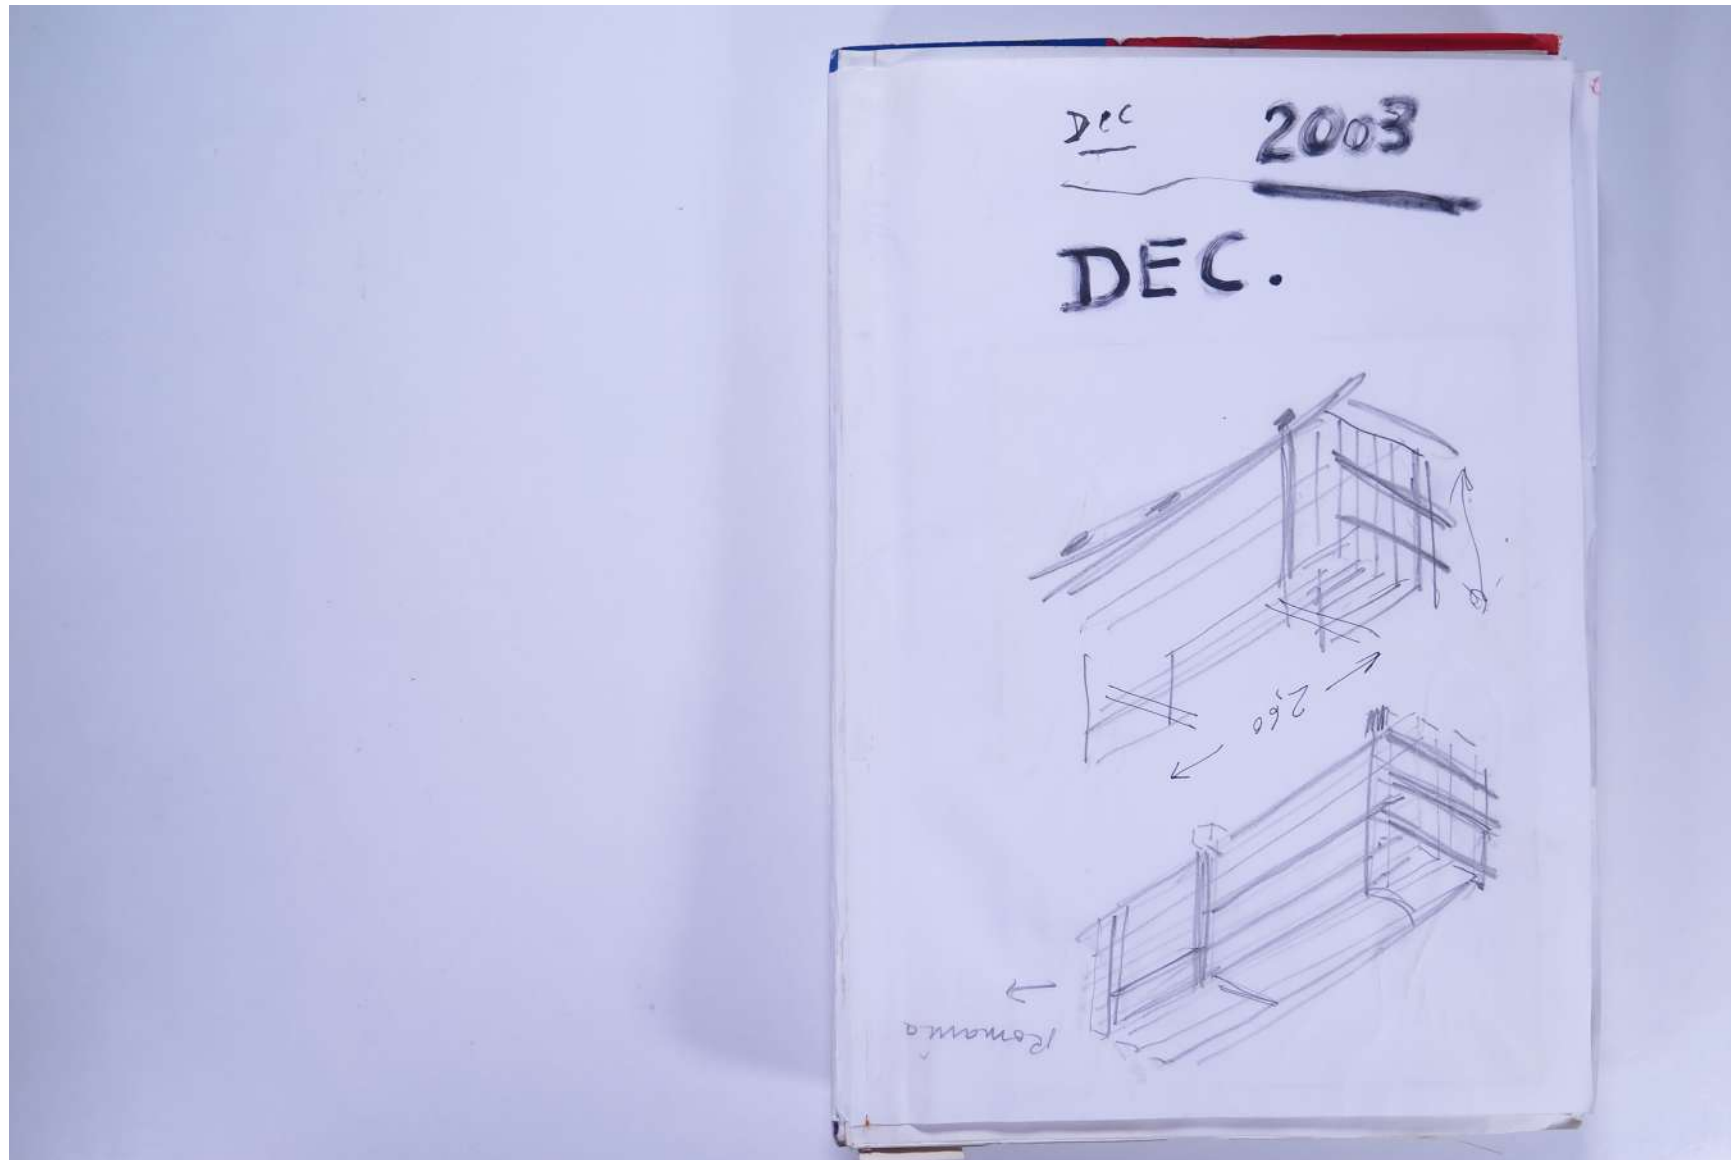 Dec 2003
DEC.
2,60
Romania